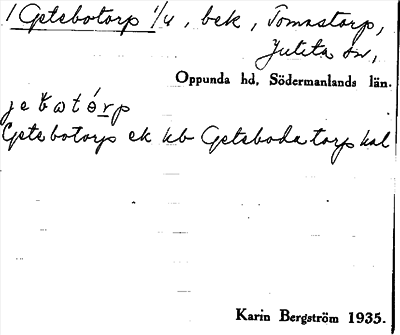 1 Getebotorp 1/4, bek, Tomastorp,
Julita sn,
Oppunda hd, Södermanlands län.
Getebotorp ek kb Geteboda torp kal
Karin Bergström 1935.